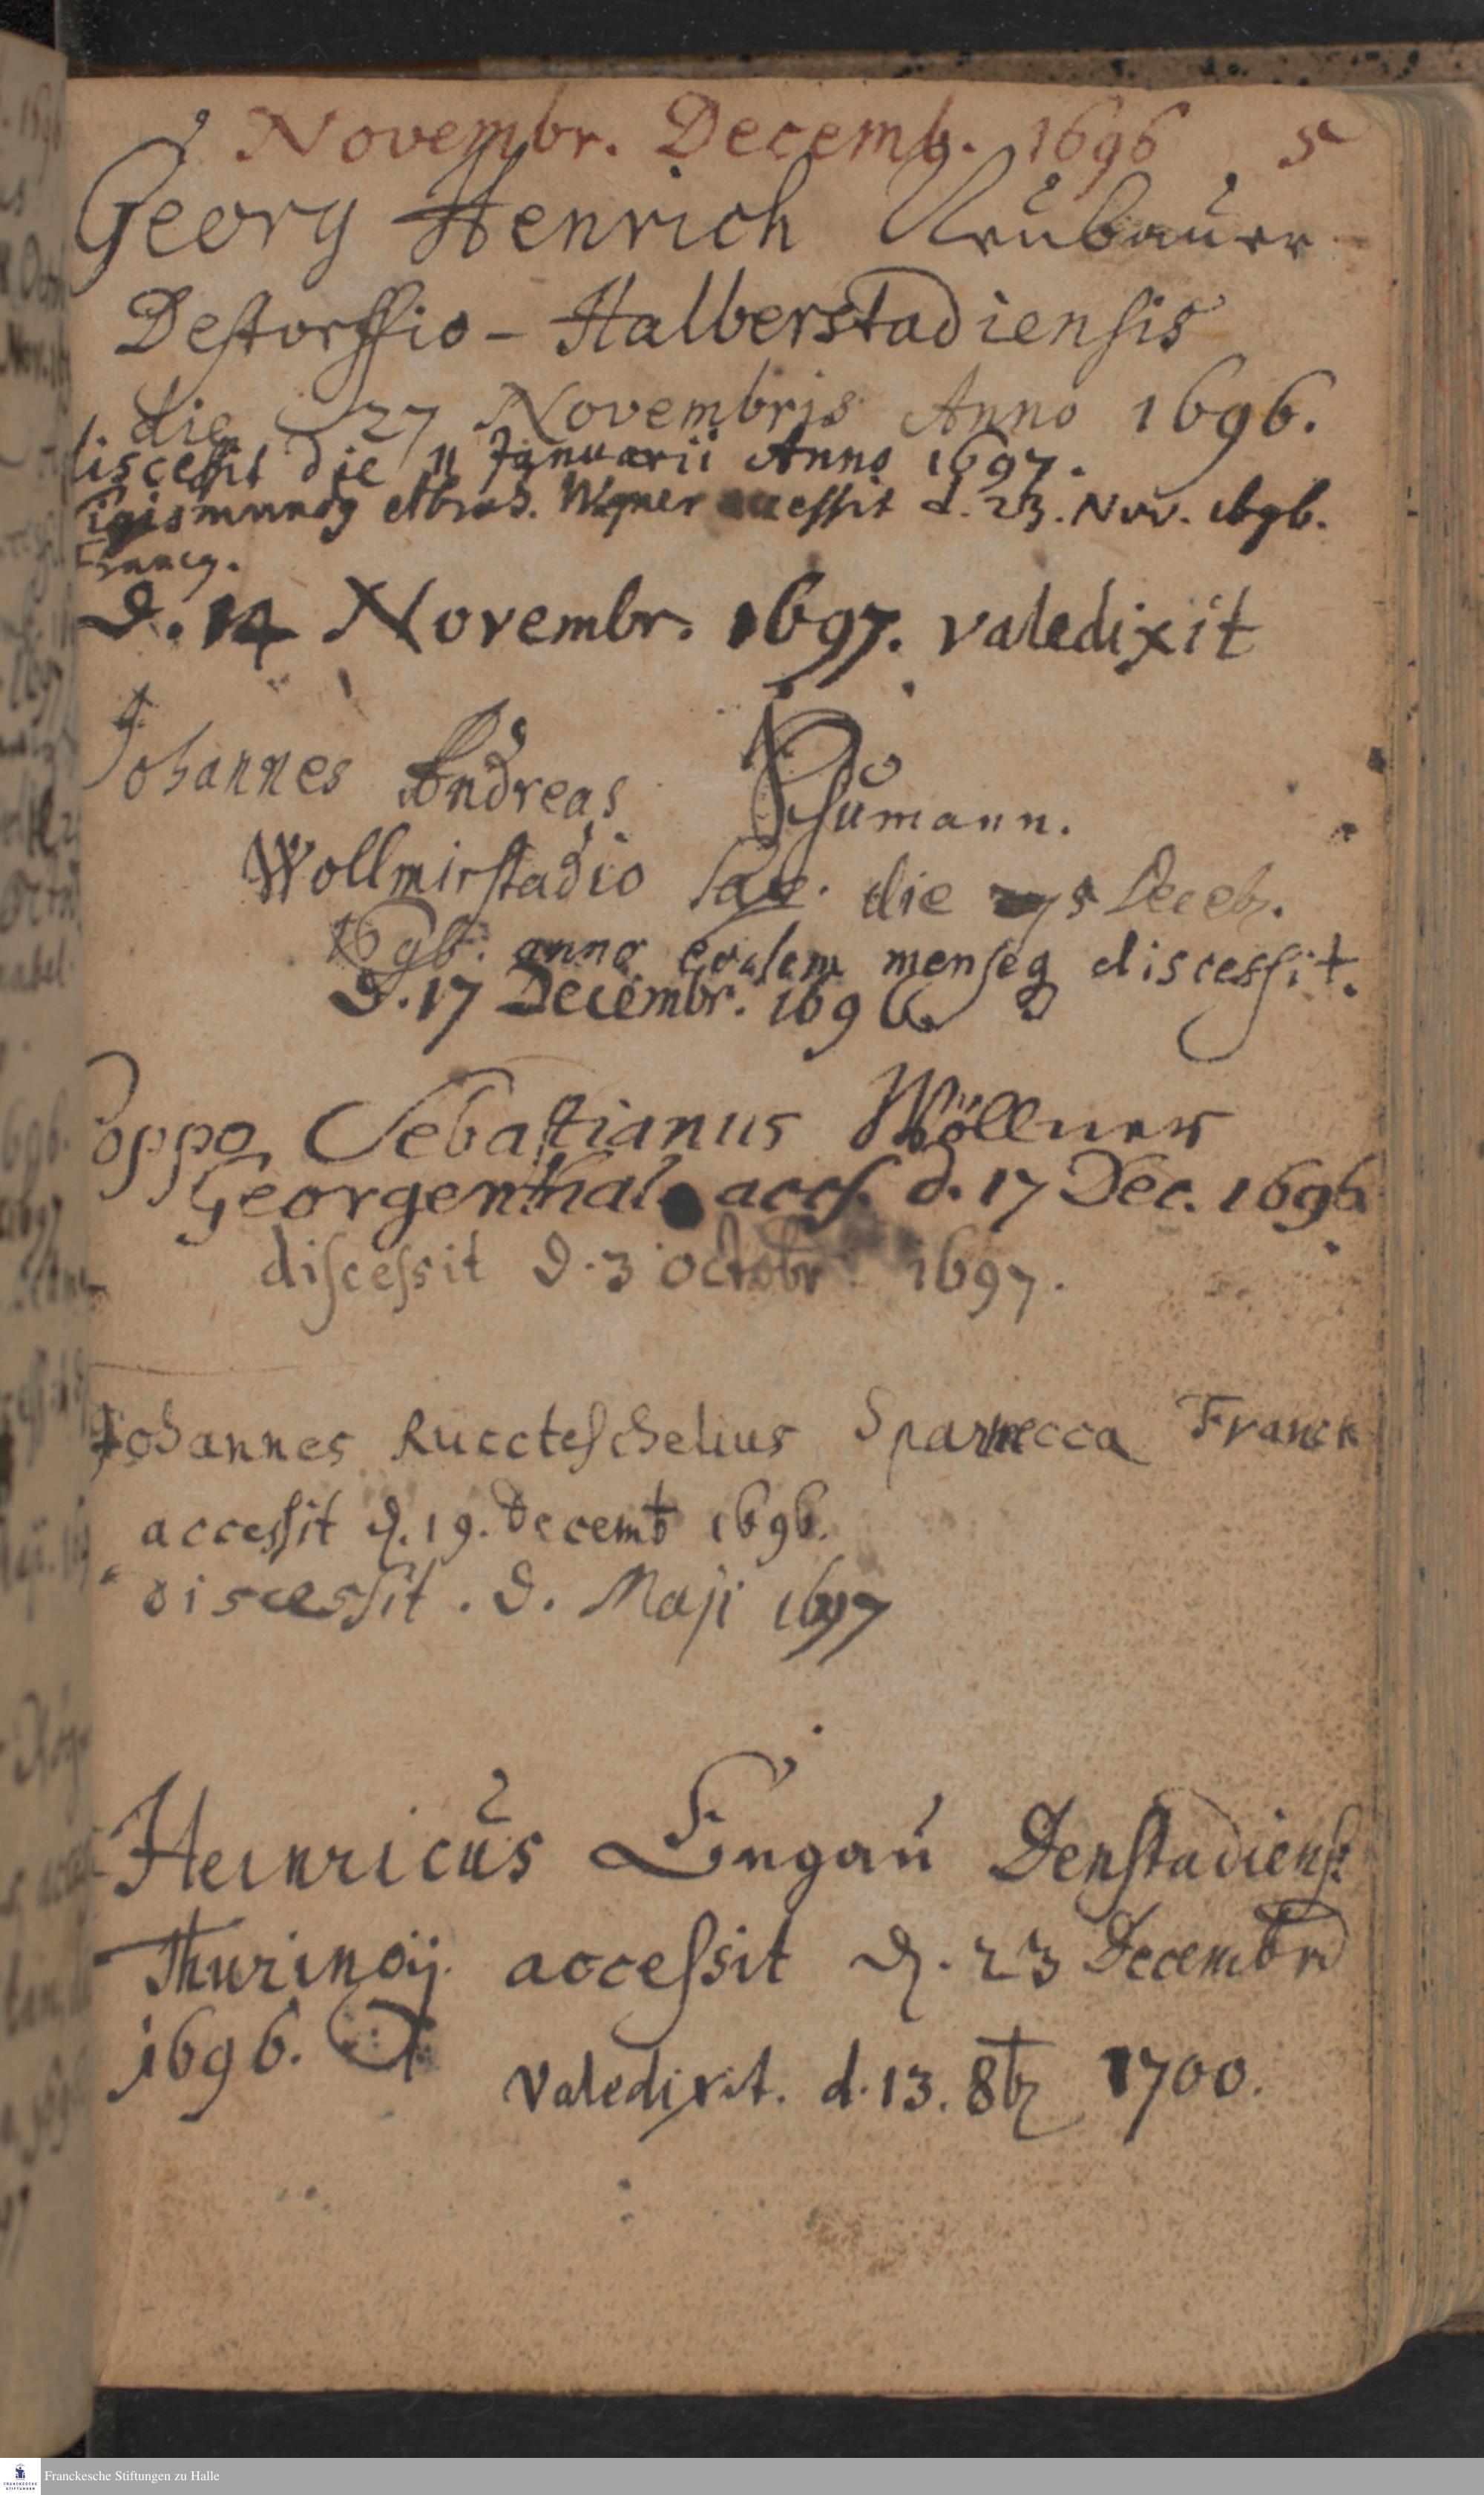 Novembr. Decemb. 1696 5
Georg Henrich Neubauer
Destorffio - Halberstadiensis
die 27 Novembris Anno 1696.
discessit die 11 Januarii Anno 1697.
Sigismundg Abrah. Wegner accessit d. 23. Nov. 1696.
Francg.
d. 14 Novembr. 1697. valedixit
Johannes Andreas Schumann.
Wollmirstadio Sax. die 5 Deceb.
1696. anno eodem menseq discessit.
d. 17 Decembr. 1696
Poppo Sebastianus Wöllner
Georgenthal. accs. d. 17 Dec. 1696
discessit d. 3 octobr. 1697.
Johannes Ruccteschelius Sparnecca Franck
accessit d. 19. Decemb 1696.
discessit. d. Maji 1697
Heinricus Lungau Denstadiens:
Thuringg. accessit d. 23 Decembr
1696.
Valedixit. d. 13. 8br 1700.
Franckesche Stiftungen zu Halle
FRANCKESCHE
STIFTUNGEN